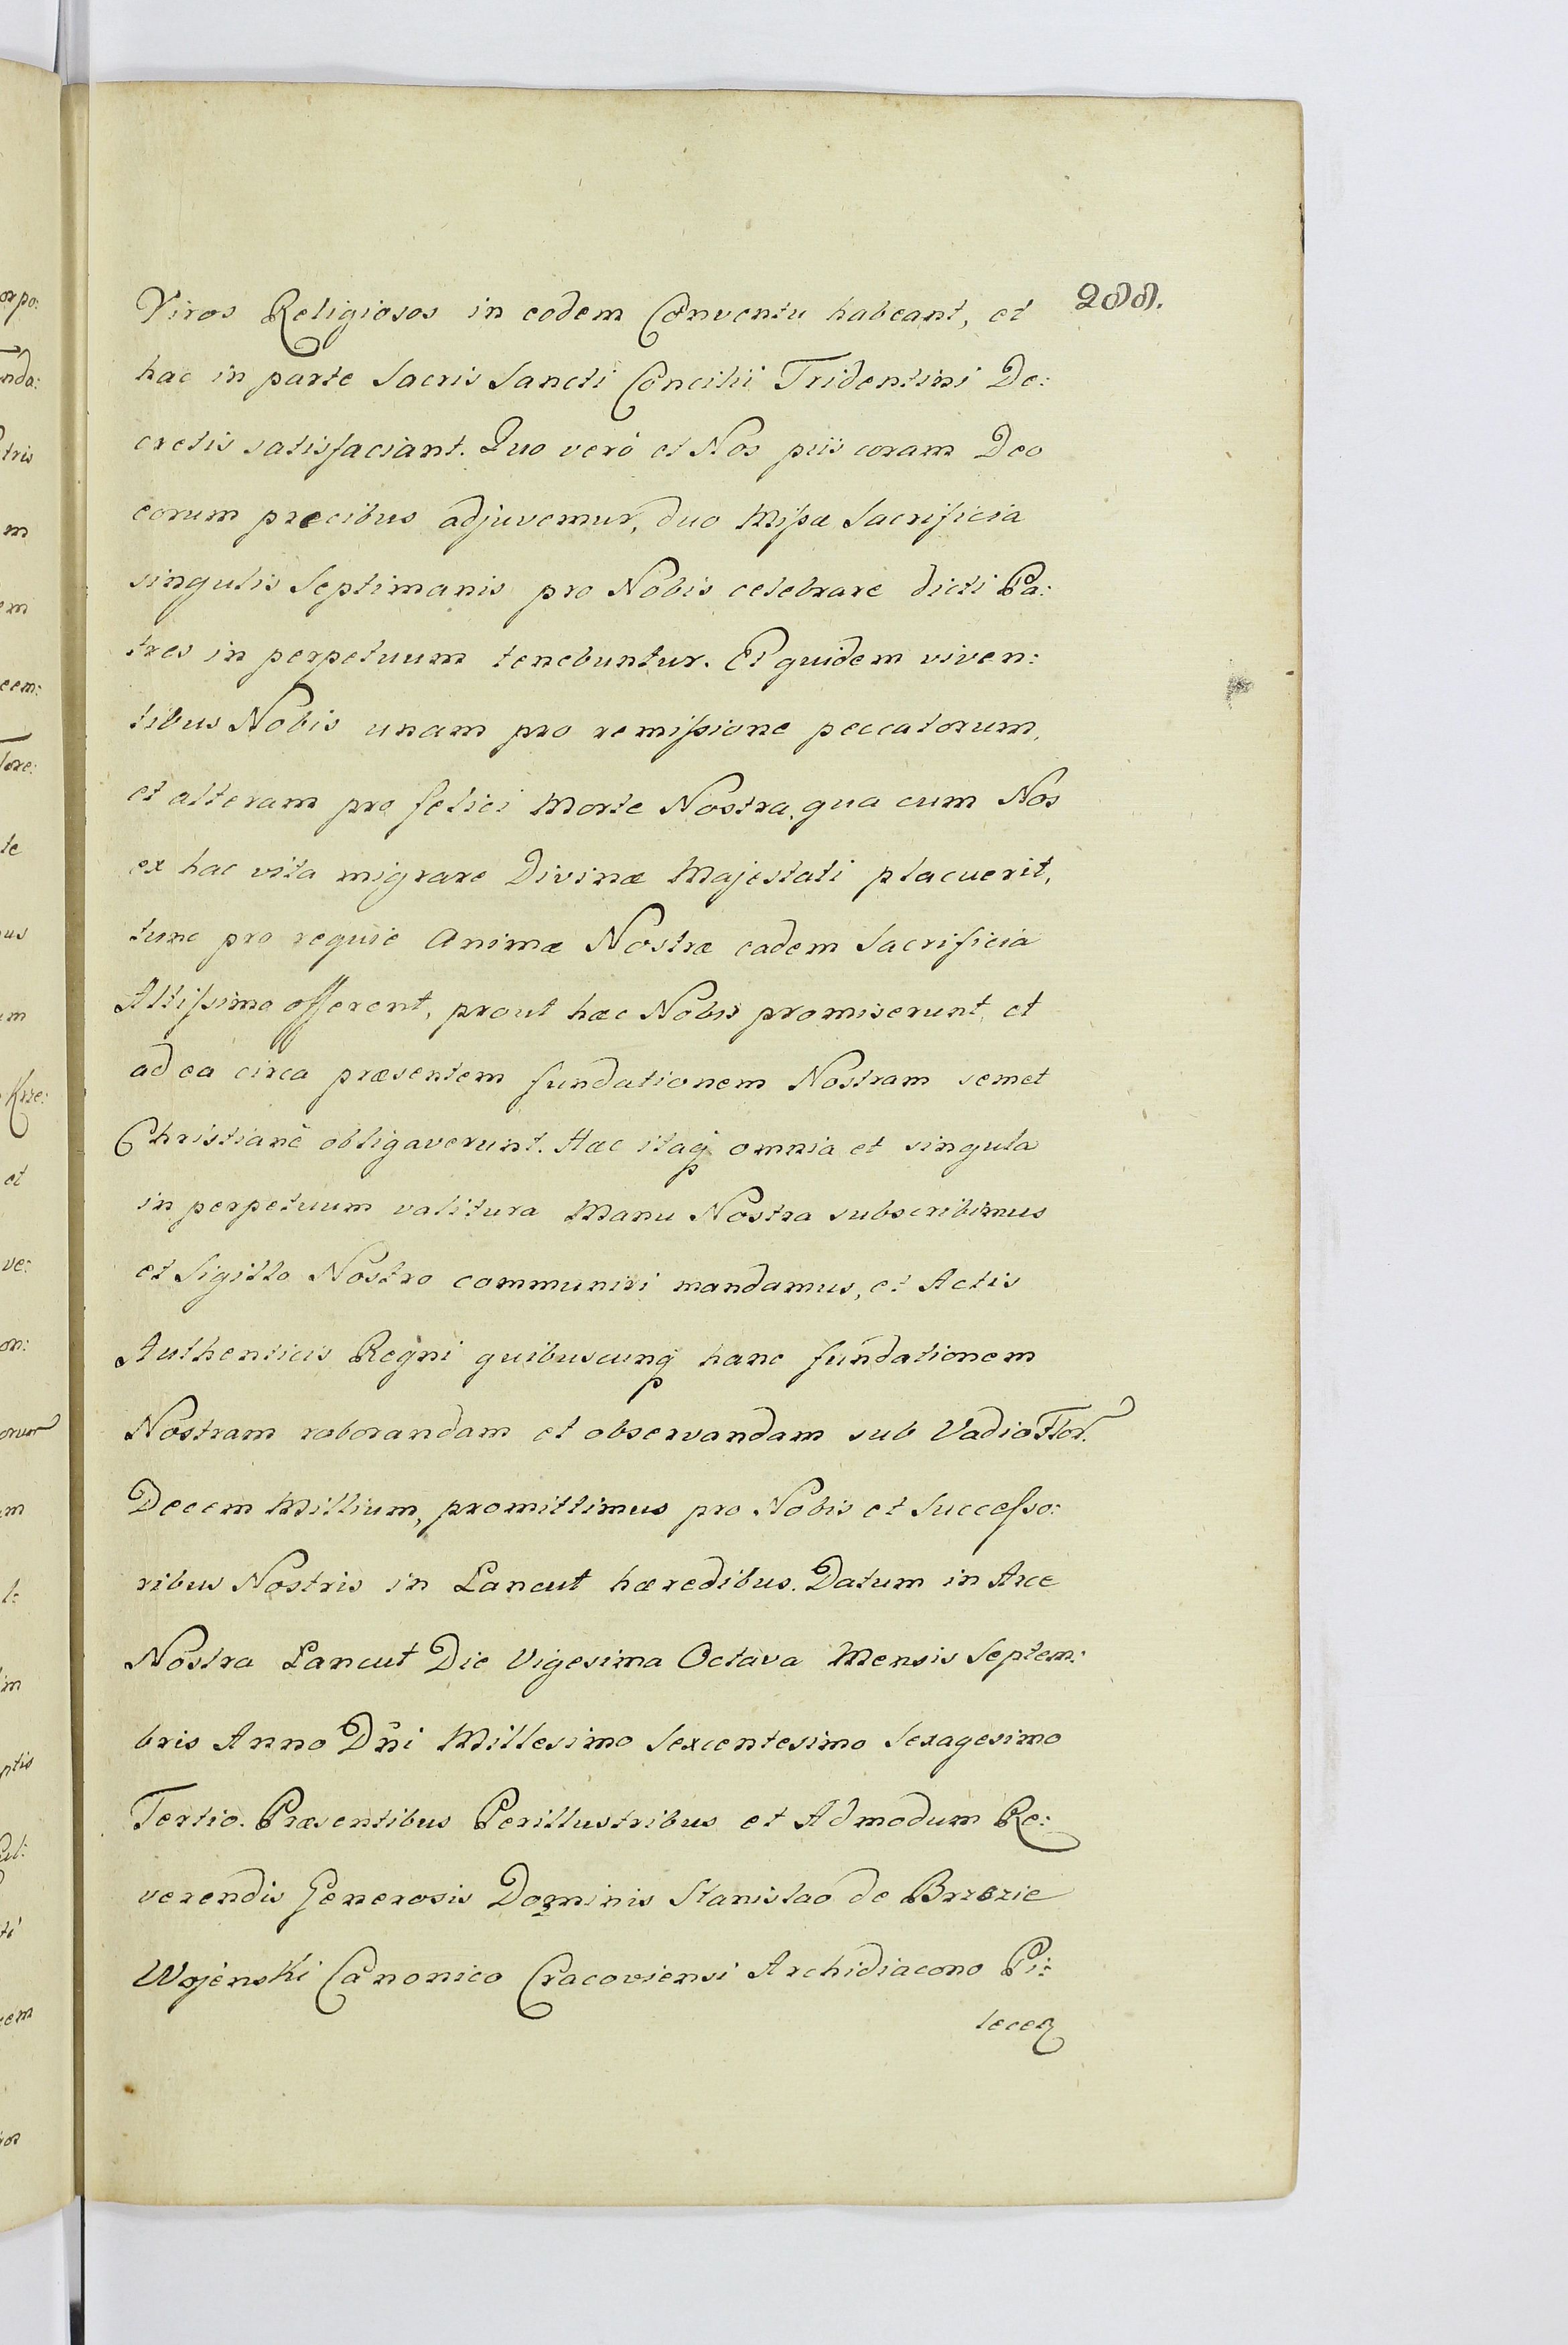 288.
Viros Religiosos in eodem Conventu habeant, et
hac in parte Sacris Sancti Concilii Tridentini De:
cretis satisfaciant. Quo verò et Nos piis coram Deo
eorum precibus adjuvemur, duo Missæ Sacrificia
singulis Septimanis pro Nobis celebrare dicti Pa:
tres in perpetuum tenebuntur. Et quidem viven:
tibus Nobis unam pro remissione peccatorum,
et alteram pro felici Morte Nostra, qua cum Nos
ex hac vita migrare Divinæ Majestati placuerit,
tunc pro requie Animæ Nostræ eadem Sacrificia
Altissimo offerent, prout hæc Nobis promiserunt, et
ad ea circa præsentem fundationem Nostram semet
Christianè obligaverunt. Hæc itaq omnia et singula
in perpetuum valitura Manu Nostra subscribimus
et Sigillo Nostro communiri mandamus, et Actis
Authenticis Regni quibuscunq hanc fundationem
Nostram roborandam et observandam sub Vadio Flor.
Decem Millium, promittimus pro Nobis et Successo:
ribus Nostris in Lancut hæredibus. Datum in Arce
Nostra Lancut Die Vigesima Octava Mensis Septem:
bris Anno Dñi Millesimo Sexcentesimo Sexagesimo
Tertio. Præsentibus Perillustribus et Admodum Re:
verendis Generosis Dominis Stanislao de Brzezie
Wojenski Canonico Cracoviensi Archidiacono Pi: